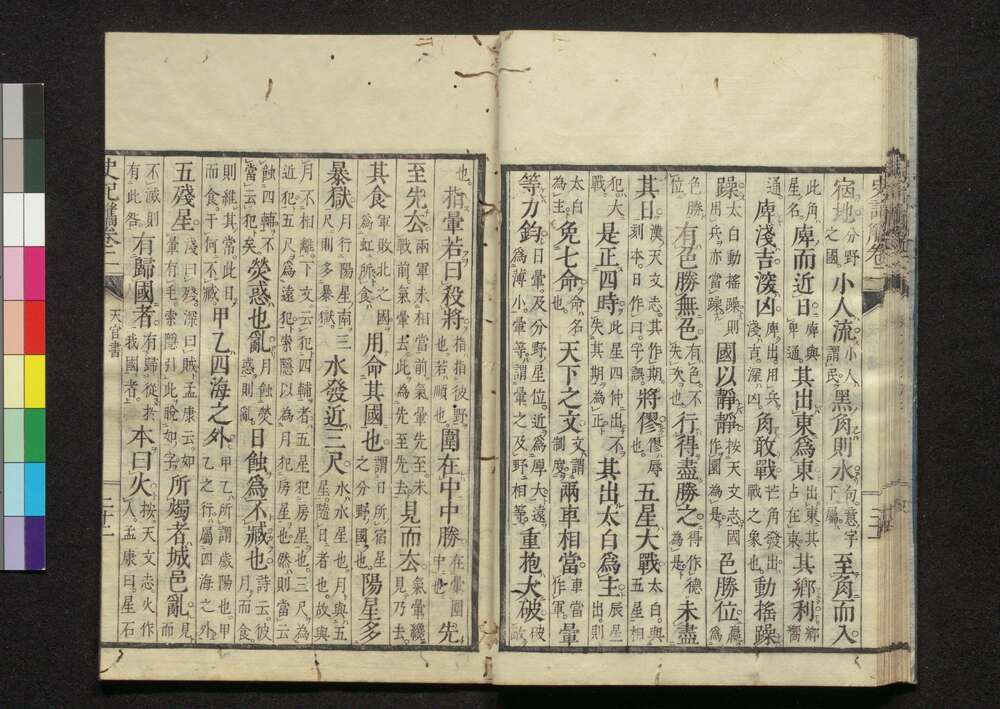 宿地之國 分野 小人流 小人謂民 黑角則水 句意字下屬 至角而入
此角星名 庳而近日 庳與卑通 其出東爲東 出東其占在東 其鄉利 鄉嚮
通 庳淺吉深凶 庳出用兵淺吉深凶 角敢戰 芒角發出戰之象也 動搖躁
躁 太白動搖躁則用兵亦當躁 國以靜靜 按天文志國作圜爲是 色勝位
位 色勝 有色勝無色 有色不失次也 行得盡勝之 得作德爲是 未盡
其日 漢天文志其作期刻本日作曰字誤 將僇 僇辱也 五星大戰 太白與五星相
戰 犯大 是正四時 此星四仲出不失其期爲正 其出太白爲主 辰星出則
爲主 太白 免七命 命名也 天下之文 文謂制度 兩車相當 車當作軍 暈
等力鈞 日暈及分野星位近爲厚大遠爲薄小暈等謂暈之及野相等 重抱大破 破
也 指暈若曰殺將 指指彼野也若順也 圍在中中勝 在暈圍中也 先
至先去 兩軍未相當前氣暈先至未戰前氣暈去此爲先至先去 見而去 氣暈纔見乃去
其食 軍敗北之國爲虹所食 用命其國也 謂日所宿星之分野國也 陽星多
暴獄 月行陽星南三尺則多暴獄 水發近三尺 水水星也月與五星隨日者也故與
月不相離下文云犯四輔者五星犯房星也三尺爲
近犯五尺爲遠犯索隱以爲月犯房星也然則當云
蝕四輔不當云犯矣 熒惑也亂 月蝕熒惑則亂 日蝕爲不臧也 詩云彼月而食
則維其常此日而食于何不臧 甲乙四海之外 甲乙所謂歲陽也甲乙之行屬四海之外
五殘星 淺曰殘深曰賊孟康云如暈有毛索隱引此脫如字 所燭者城邑亂 見
不滅則有此咎 有歸國者 有歸從於我國者 本曰火 按天文志火作人孟康曰星石
史記觿卷二
天官書
二十二